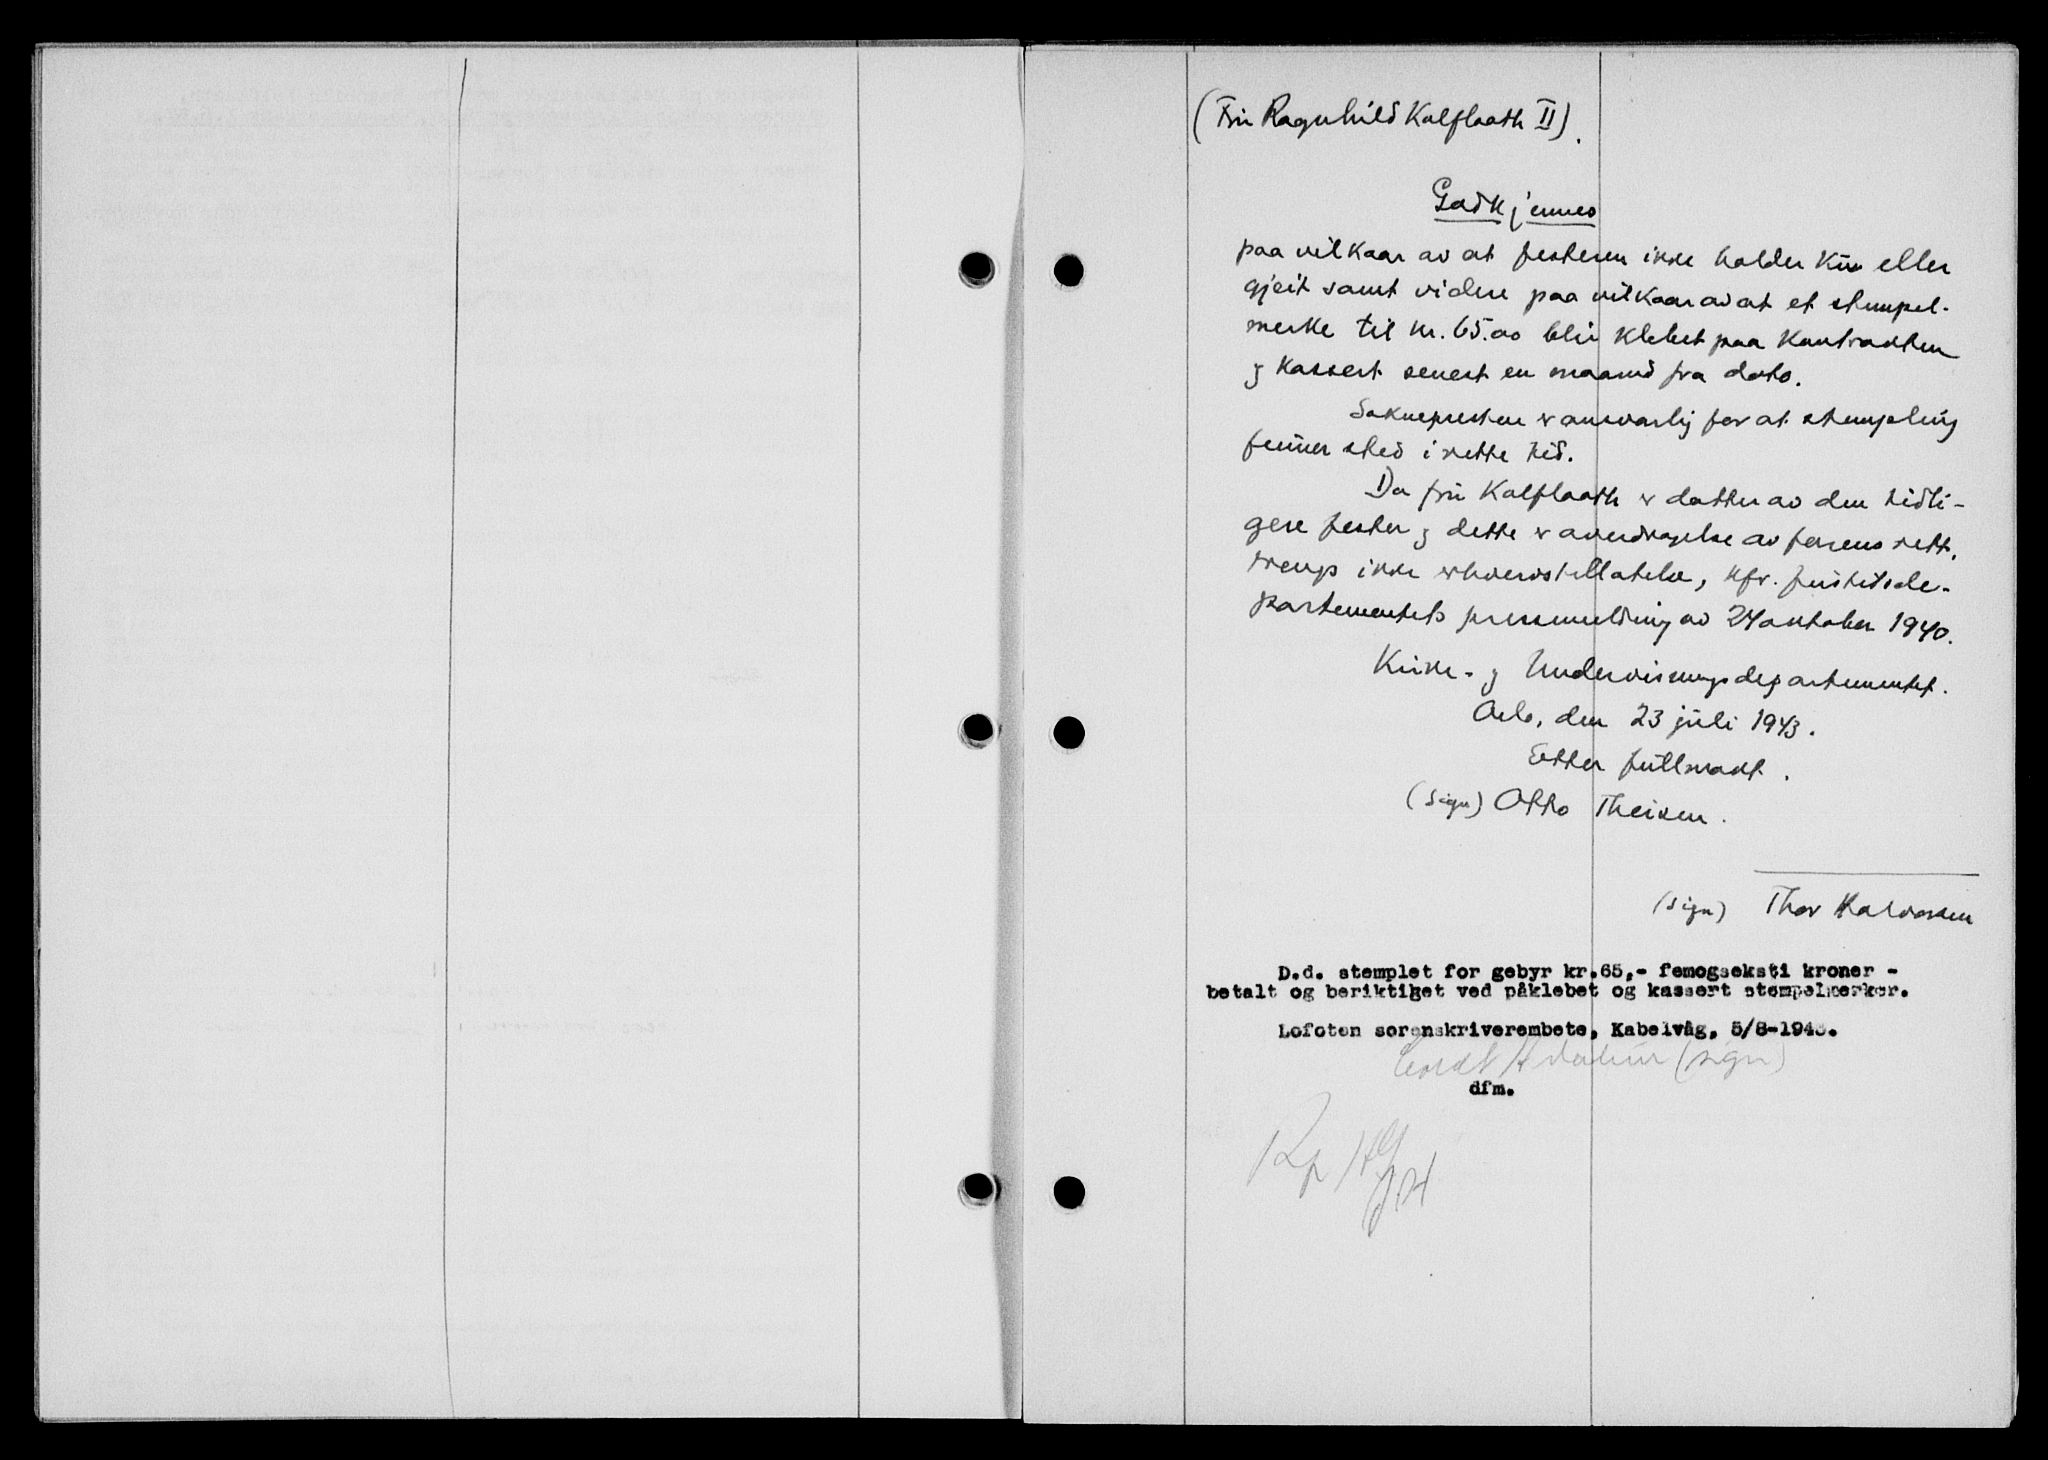 (Fru Ragnhild Kalflaath II).
Godkjennes
paa vilkaar av at festeren ikke holder ku eller
gjeit samt videre paa vilkaar av at et stempel-
merke til kr. 65.00 blir klebet paa kontrakten
og kassert senest en maaned fra dato.
Soknepresten er ansvarlig for at stempling
finner sted i rette tid.
Da fru Kalflaath er datter av den tidli-
gere fester og dette er overdragelse av festens rett,
trengs ikke erhvervstillatelse, kfr. justisde-
partementets pressemelding av 24 oktober 1940.
Kirke- og Undervisningsdepartementet.
Oslo, den 23 juli 1943.
Etter fullmakt.
(sign) Otto Theisen.
(sign) Thor Halvorsen
D.d. stemplet for gebyr kr.65,- femogseksti kroner -
betalt og beriktiget ved påklebet og kassert stempelmerker.
Lofoten sorenskriverembete, Kabelvåg, 5/8-1943.
(sign)
dfm.